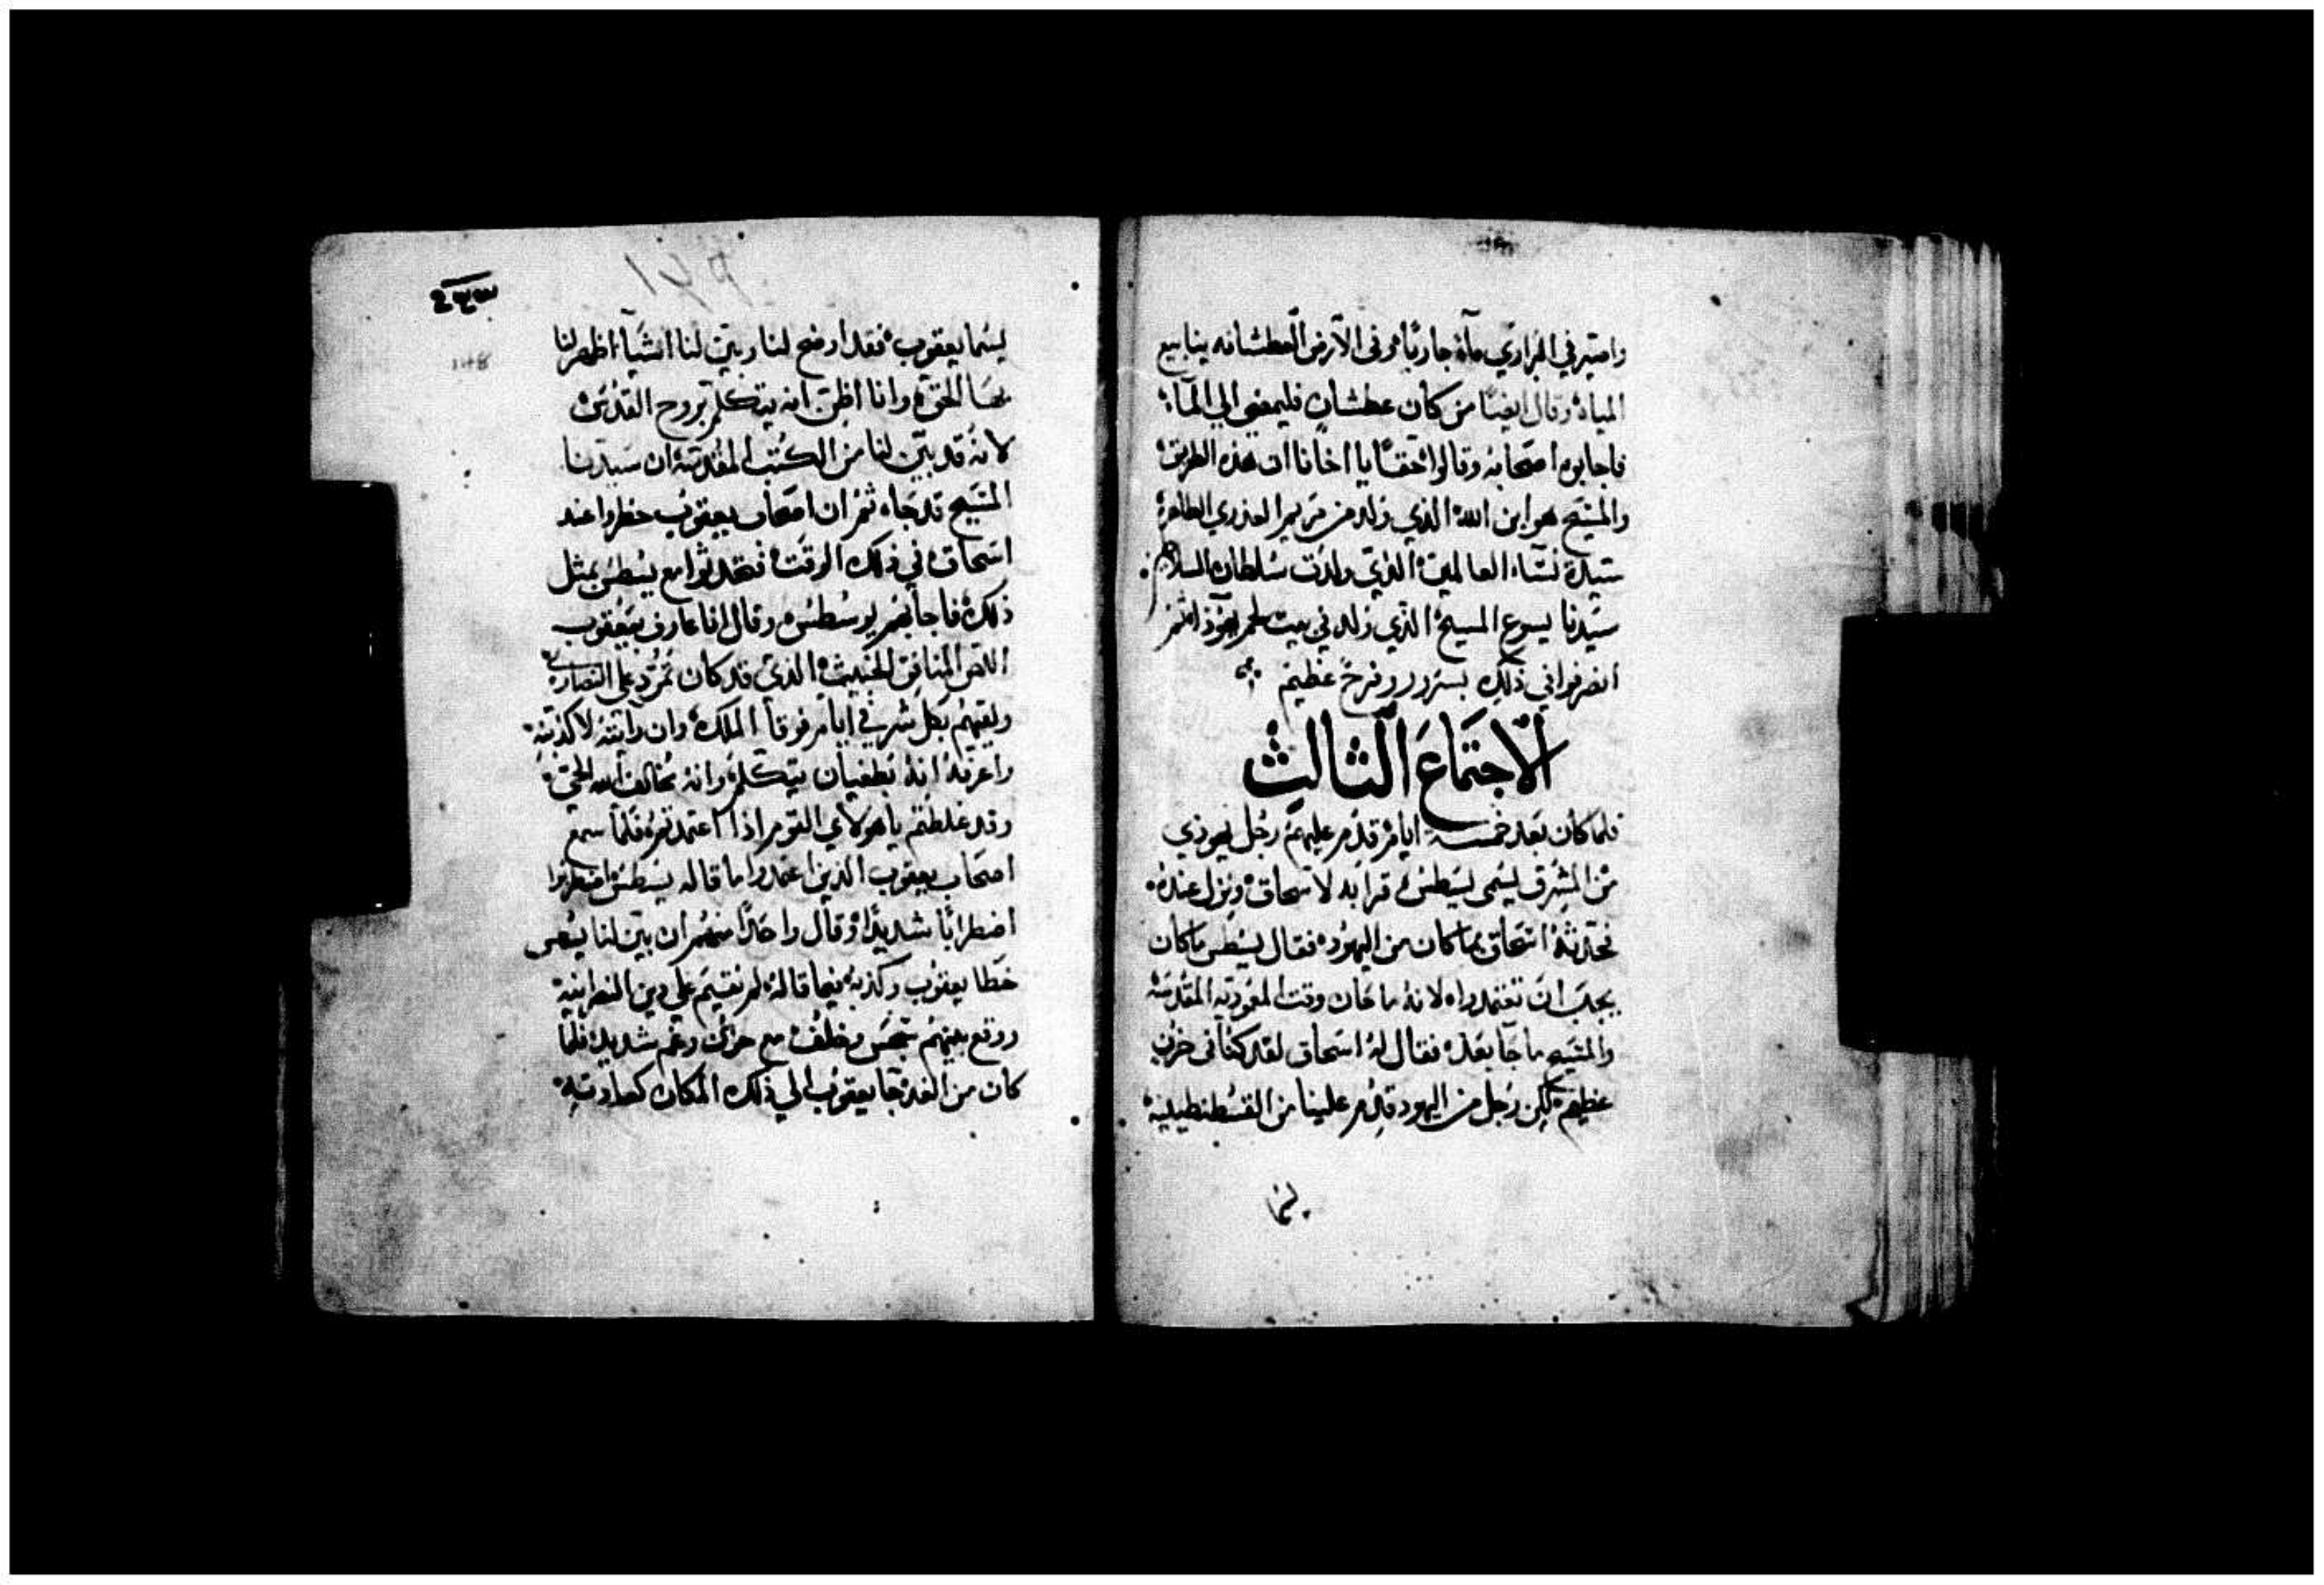 واصير في البراري مآء جاريًا وفى الارض العطشانه ينابيع
المياه وقال ايضًا من كان عطشان فليمضى الي المآء
فاجابوه اصحابه وقالوا حقًا يا اخانا ان هذه الطريق
والمسيح هو ابن الله الذي ولد من مريم العذري الطاهرة
سيدة نسآء العالمين الذي ولدت سلطان السلام
سيدنا يسوع المسيح الذي ولد في بيت لحم يهوذا ثم
انصرفوا في ذلك بسرور وفرح عظيم
الاجتماع الثالث
فلما كان بعد خمسه ايام قدم عليهم رجل يهوذي
من المشرق يسمى يسطس قرابه لاسحاق ونزل عنده
فحدثه اسحاق بما كان من اليهود فقال يسطس ما كان
يجب ان تعتمدوا لانه ما حان وقت المعوديه المقدسه
والمسيح ما جا بعد فقال له اسحاق لقد كنا فى حزن
عظيم لكن رجل من اليهود قدم علينا من القسطنطينيه
يسما يعقوب فقد اوضح لنا وبين لنا اشيآء اظهر لنا
بها الحق وانا اظن انه يتكلم بروح القدس
لانه قد بين لنا من الكتب المقدسه ان سيدنا
المسيح قد جاء ثم ان اصحاب يعقوب حظروا عند
اسحاق في ذلك الوقت فتحدثوا مع يسطس بمثل
ذلك فاجابهم يوسطس وقال انا عارف بيعقوب
اللص المنافق الخبيث الذي قد كان تمرد على النصارى
ولقيهم بكل شر في ايام فوقا الملك وان رايته لاكذبنه
واعرفه انه بطغيان يتكلم وانه مخالف لله الحق
وقد غلطتم يا هولاي القوم اذا اعتمدتم فلما سمع
اصحاب يعقوب الذين اعتمدوا ما قاله يسطس اضطربوا
اضطرابًا شديدًا وقال واحدًا منهم ان بين لنا يسطس
خطا يعقوب وكذبه فيما قاله لم نقيم على دين النصرانيه
ووقع بينهم وخلف مع حزن وغم شديد فلما
كان من الغد جا يعقوب الي ذلك المكان كعادته